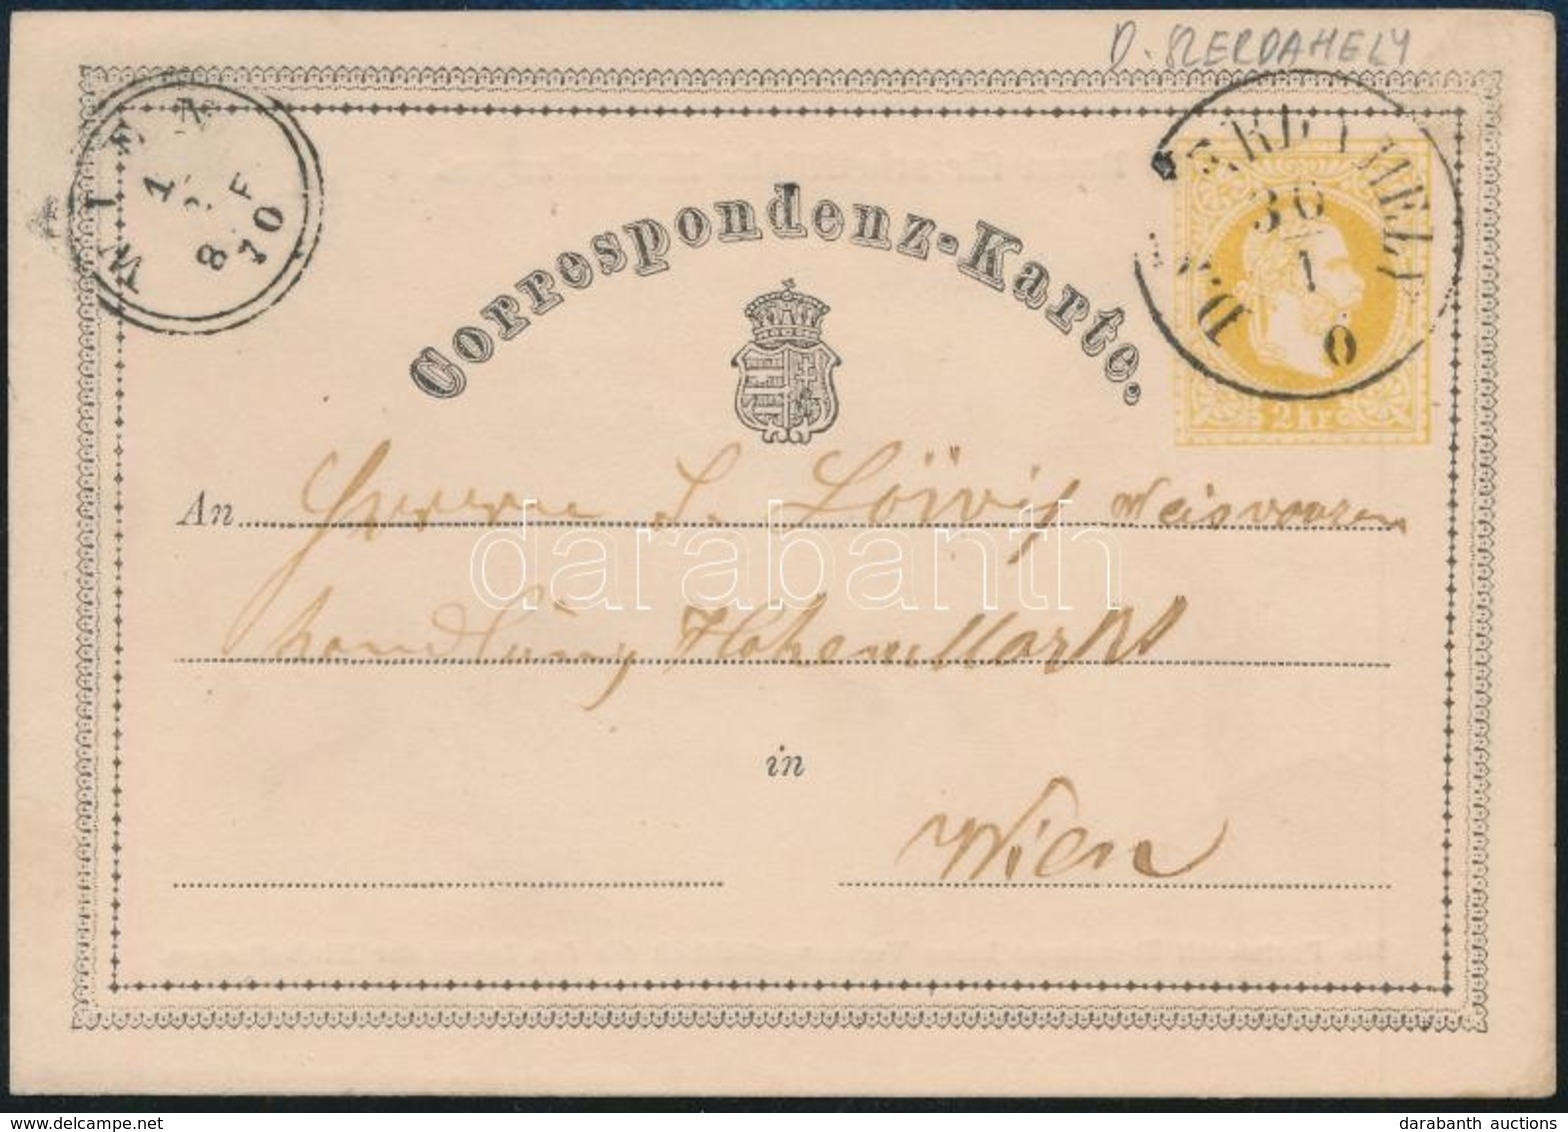 D. SZERDAHELY
D. SZERDAHELY
30
1
0
WIEN
1
2
8 F
70
Correspondenz-Karte.
2 Kr
An Herrn L. Löwÿ Weisvaaren
handlung Hohenmarkt
in
Wien
darabanth
darabanth auctions